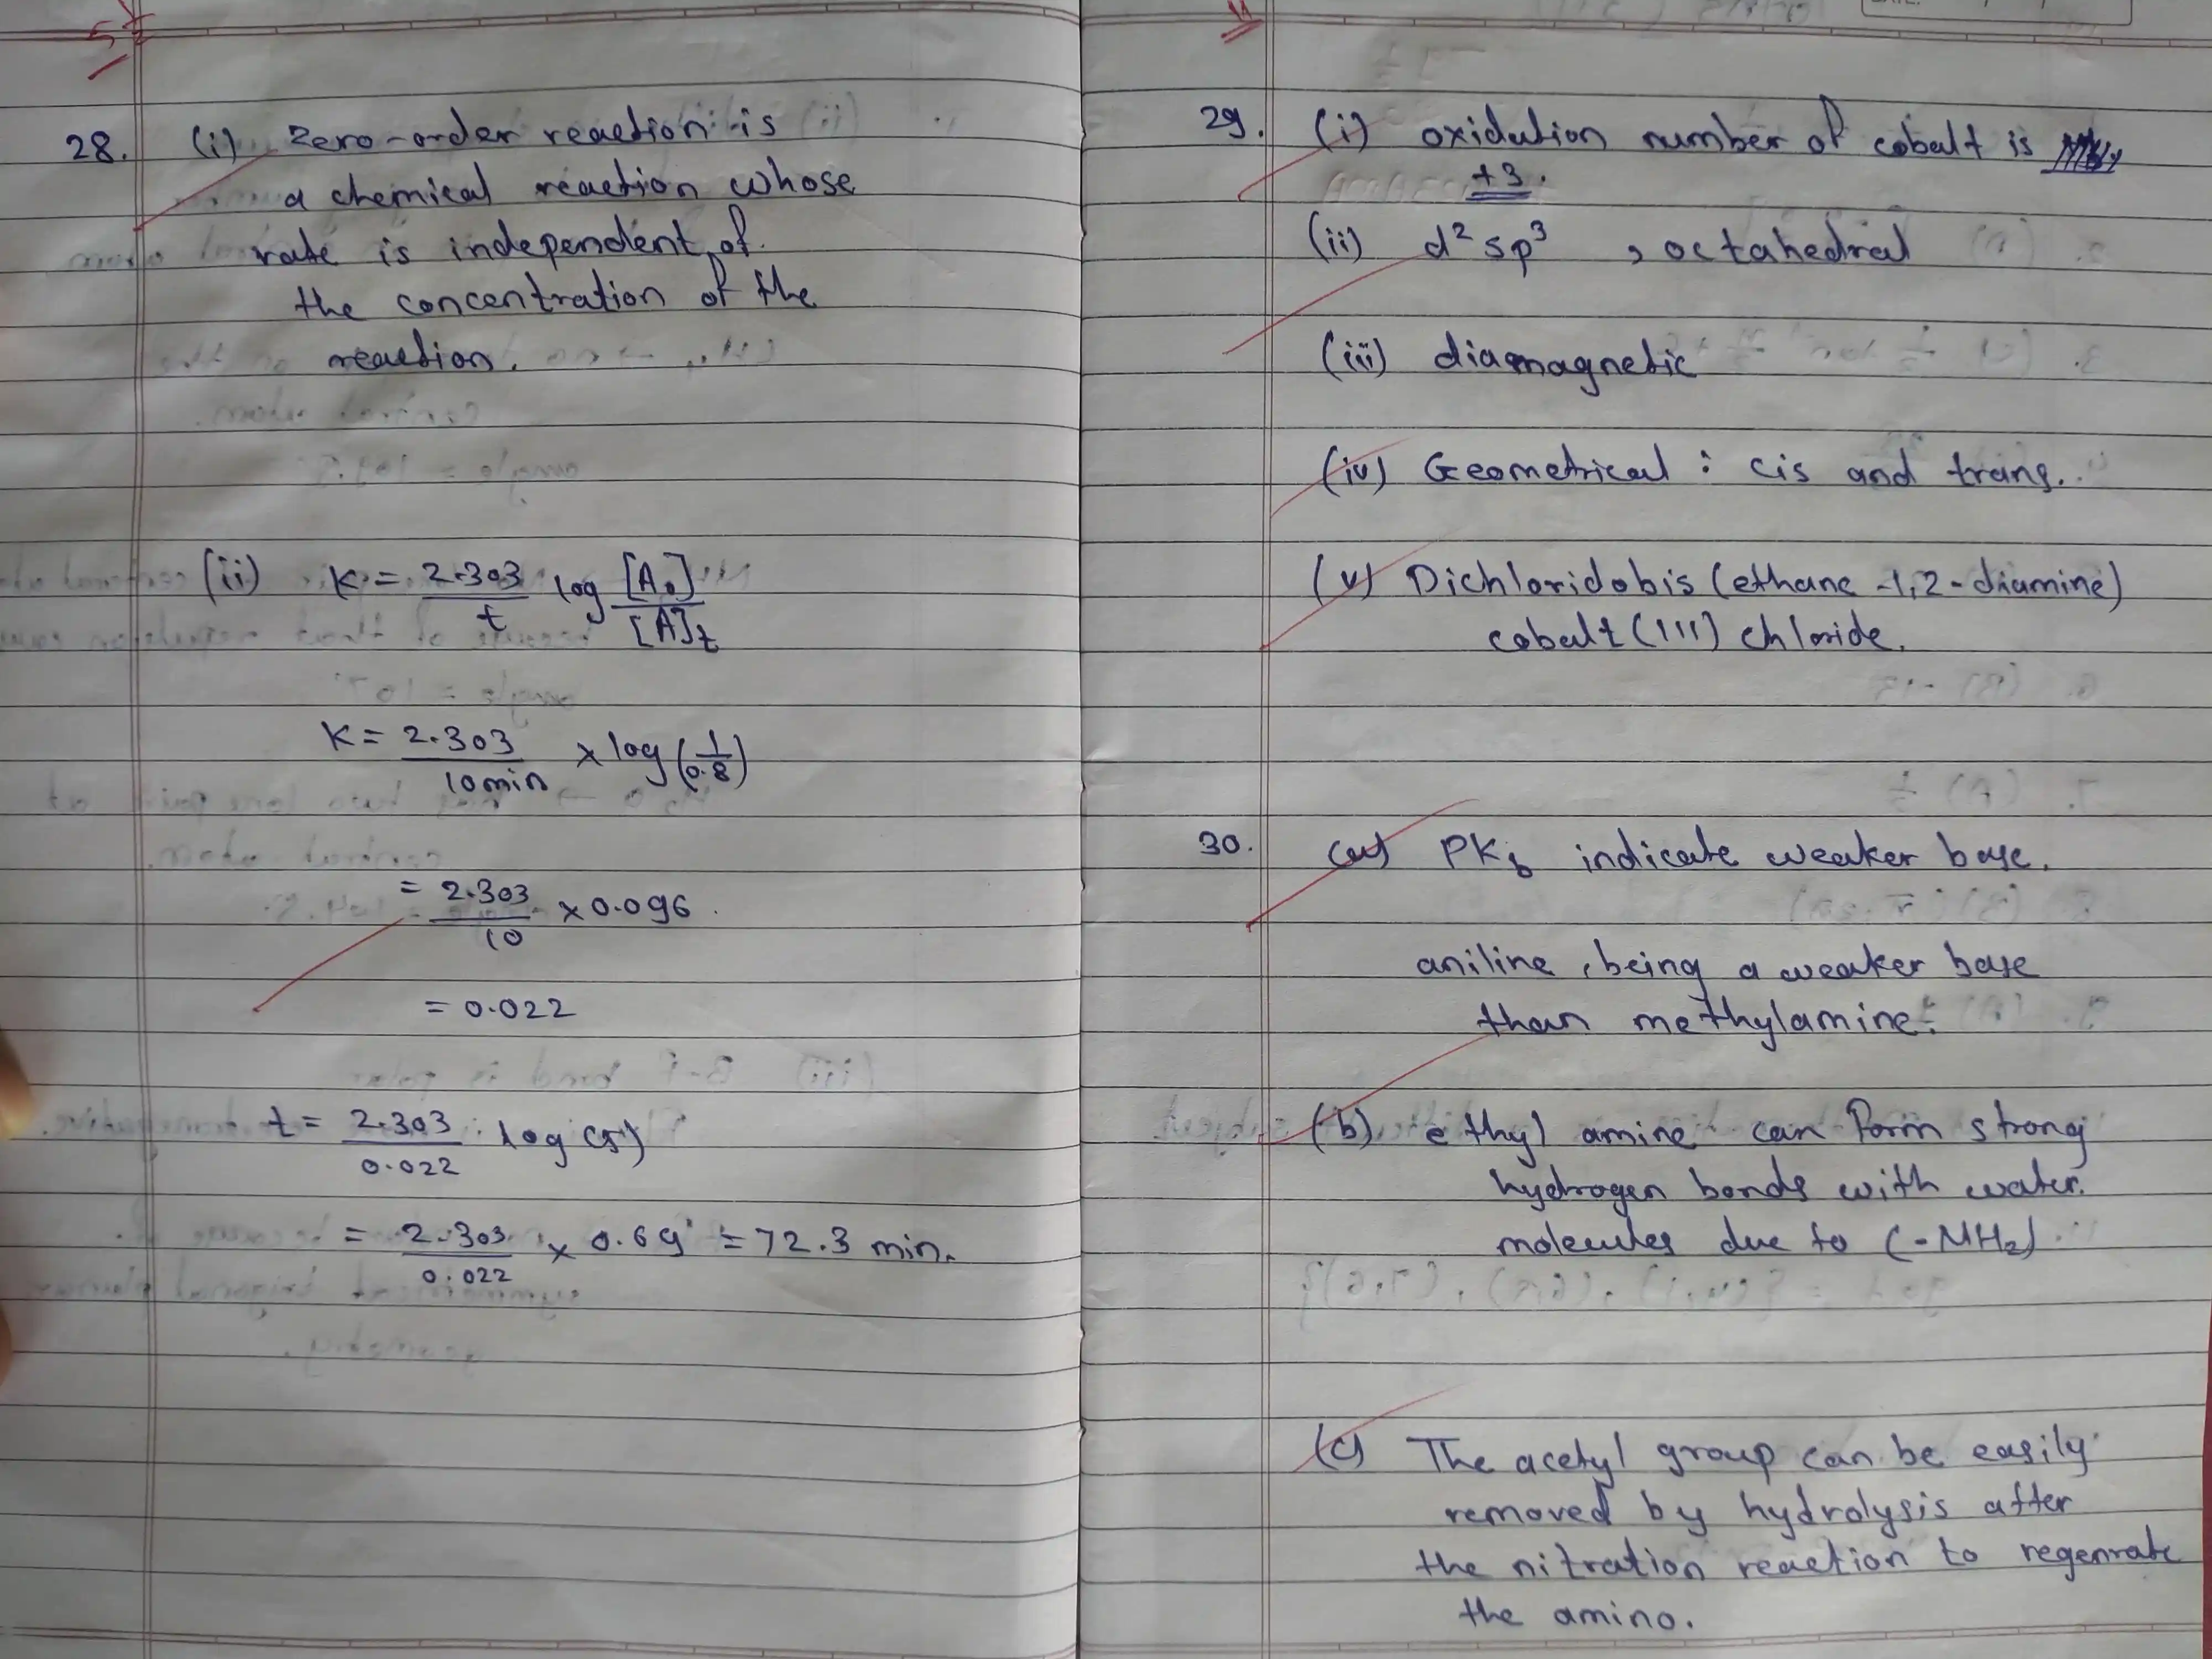 28. (i) Zero-order reaction is
a chemical reaction whose
rate is independent of
the concentration of the
reaction.
(ii) K = 2.303/t log [A₀]/[A]t
K = 2.303/10min × log (1/0.8)
= 2.303/10 × 0.096
= 0.022
t = 2.303/0.022 log (5)
= 2.303/0.022 × 0.69 = 72.3 min.
29. (i) oxidation number of cobalt is
+3.
(ii) d²sp³ , octahedral
(iii) diamagnetic
(iv) Geometrical : cis and trans.
(v) Dichloridobis (ethane -1,2-diamine)
cobalt (III) chloride.
30. (a) PKb indicate weaker base.
aniline, being a weaker base
than methylamine.
(b) ethyl amine can form strong
hydrogen bonds with water
molecules due to (-NH₂)
(c) The acetyl group can be easily
removed by hydrolysis after
the nitration reaction to regenrate
the amino.